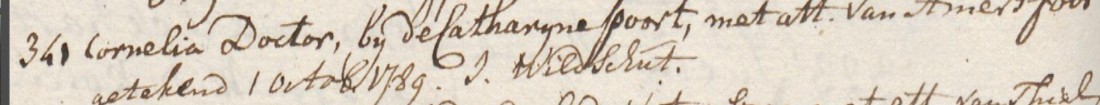 341 Cornelia Doctor, by de Catharyne poort, met att. van Amersfoor
getekend 1 Octob. 1789. J. Wildschut.
att. van Thiel